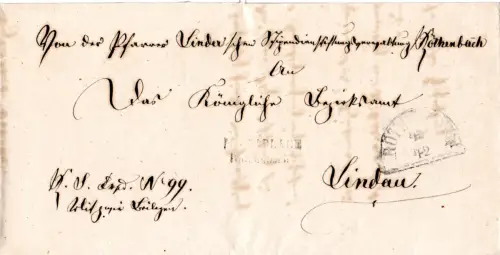 Von der Pfarrer Linder'schen Stipendienstiftungsverwaltung Röthenbach
An
Das Königliche Bezirksamt
Lindau.
K. S. Exp. No 99.
Mit zwei Beilagen.